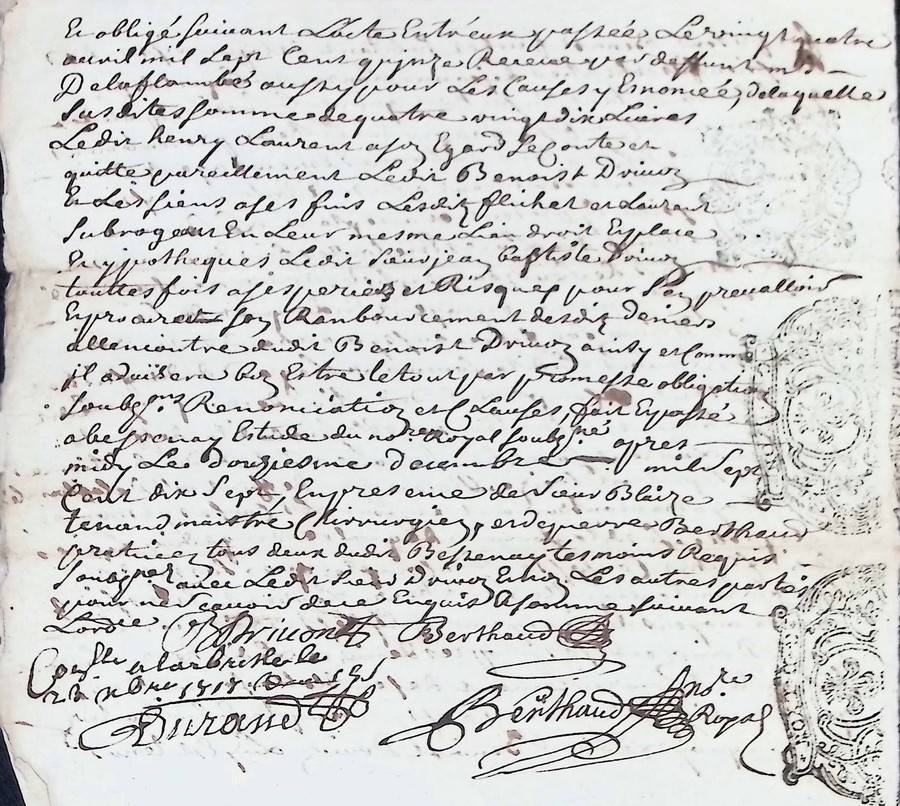 Et obligé suivant Lacte Entréux passée Le vingt quatre
avril mil Sept Cent quinze Receue par deffunt mre
Delaflambé aussy pour Les Causes y Enoncées delaquelle
Susdites somme dequatre vingt dix Livres
Ledit henry Laurent a soy Egard Le Conte et
quitte pareillement Ledit Benoist Drivoz
Et Les siens a ses fins Lesdits flichet et Laurent
Subrogeant En Leur mesme Lieu droit Explace
Et ypotheques Ledit Sieur jean baptiste Drivoz
touttes fois a ses perièz et Risques pour Sen prevalloir
Et procurer son Ranboursement desdits deniers
allencontre dudit Benoist Drivoz ainsy et Comme
jl advisera bon Estre le tout par promesse obligation
Soubzons Renonciation et Clauses, fait Et passé
abessenay Estude du nore Royal Soubsné apres
midy Le douziesme decembre mil Sept
Cent dix Sept, En presence de Sieur Blaize
tenand maistre Chirurgien, et de pierre Berthaud
praticien tous deux dudit Bessenay tesmoins Requis
Soussignez avec Ledit sieur Drivoz Et non Les autres parties
pour ne Scavoir dece Enquis Et somme suivant
Lordce Drivon Berthaud
Conllé alabresle le
Xbre 1717
Durand Berthaud nore Royal